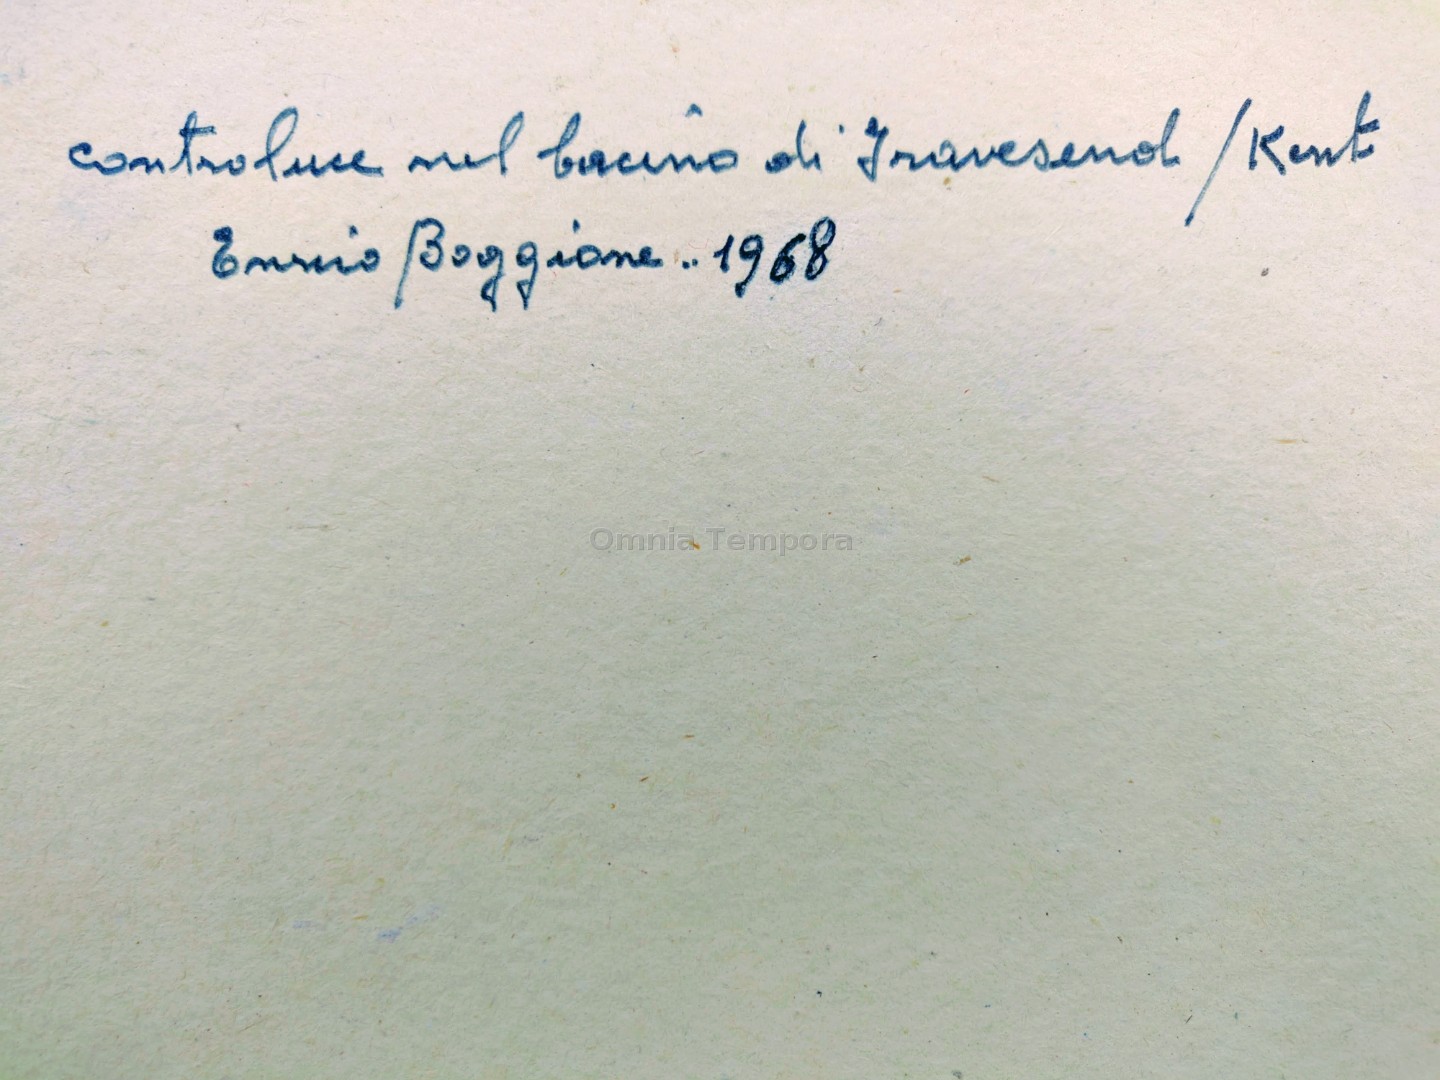 controluce nel bacino di Gravesend / Kent
Enrico Boggione .. 1968
Omnia Tempora